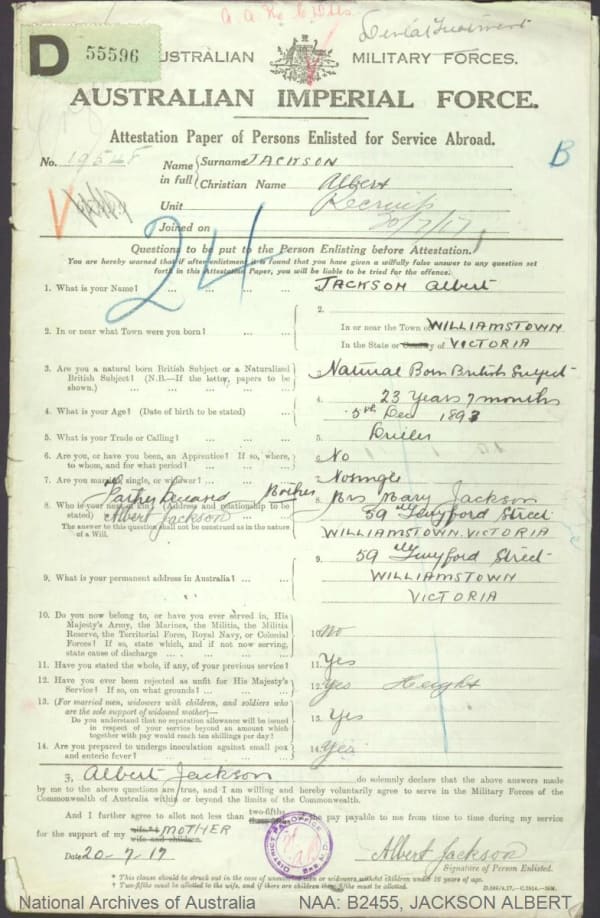 D 55596
Dental Treatment
AUSTRALIAN MILITARY FORCES.
AUSTRALIAN IMPERIAL FORCE.
Attestation Paper of Persons Enlisted for Service Abroad.
No. 19548 Name in full { Surname JACKSON
Christian Name Albert
B
Unit Recruits
Joined on 20/7/17
24
Questions to be put to the Person Enlisting before Attestation.
You are hereby warned that if after enlistment it is found that you have given a wilfully false answer to any question set
forth in this Attestation Paper, you will be liable to be tried for the offence.
1. What is your Name? ... ... ... ... 1. JACKSON Albert
2. In or near what Town were you born? ... ... 2. In or near the Town of WILLIAMSTOWN
In the State or County of VICTORIA
3. Are you a natural born British Subject or a Naturalized
British Subject? (N.B.—If the latter, papers to be
shown.) ... ... ... ... 3. Natural Born British Subject
4. What is your Age? (Date of birth to be stated) ... 4. 23 Years 7 months
5th Dec 1893
5. What is your Trade or Calling? ... ... ... 5. Driller
6. Are you, or have you been, an Apprentice? If so, where,
to whom, and for what period? ... ... 6. No
7. Are you married, single, or widower? ... ... 7. No single
Father Deceased Mother
Albert Jackson
8. Who is your next of kin? (Address and relationship to be
stated)
The answer to this question shall not be construed as in the nature
of a Will.
8. Mrs Mary Jackson
59 Twyford Street
WILLIAMSTOWN. VICTORIA
9. What is your permanent address in Australia? ... ... 9. 59 Twyford Street
WILLIAMSTOWN
VICTORIA
10. Do you now belong to, or have you ever served in, His
Majesty's Army, the Marines, the Militia, the Militia
Reserve, the Territorial Force, Royal Navy, or Colonial
Forces? If so, state which, and if not now serving,
state cause of discharge ... ... ... 10. No
11. Have you stated the whole, if any, of your previous service? 11. Yes
12. Have you ever been rejected as unfit for His Majesty's
Service? If so, on what grounds? ... ... 12. Yes Height
13. (For married men, widowers with children, and soldiers who
are the sole support of widowed mother)—
Do you understand that no separation allowance will be issued
in respect of your service beyond an amount which
together with pay would reach ten shillings per day? 13. Yes
14. Are you prepared to undergo inoculation against small pox
and enteric fever? ... ... ... 14. Yes
I, Albert Jackson do solemnly declare that the above answers made
by me to the above questions are true, and I am willing and hereby voluntarily agree to serve in the Military Forces of the
Commonwealth of Australia within or beyond the limits of the Commonwealth.
And I further agree to allot not less than two-fifths of the pay payable to me from time to time during my service
for the support of my MOTHER
wife and children.
Date 20-7-17
Albert Jackson
Signature of Person Enlisted.
* This clause should be struck out in the case of unmarried men or widowers without children under 16 years of age.
† Two-fifths must be allotted to the wife, and if there are children three-fifths must be allotted.
National Archives of Australia NAA: B2455, JACKSON ALBERT